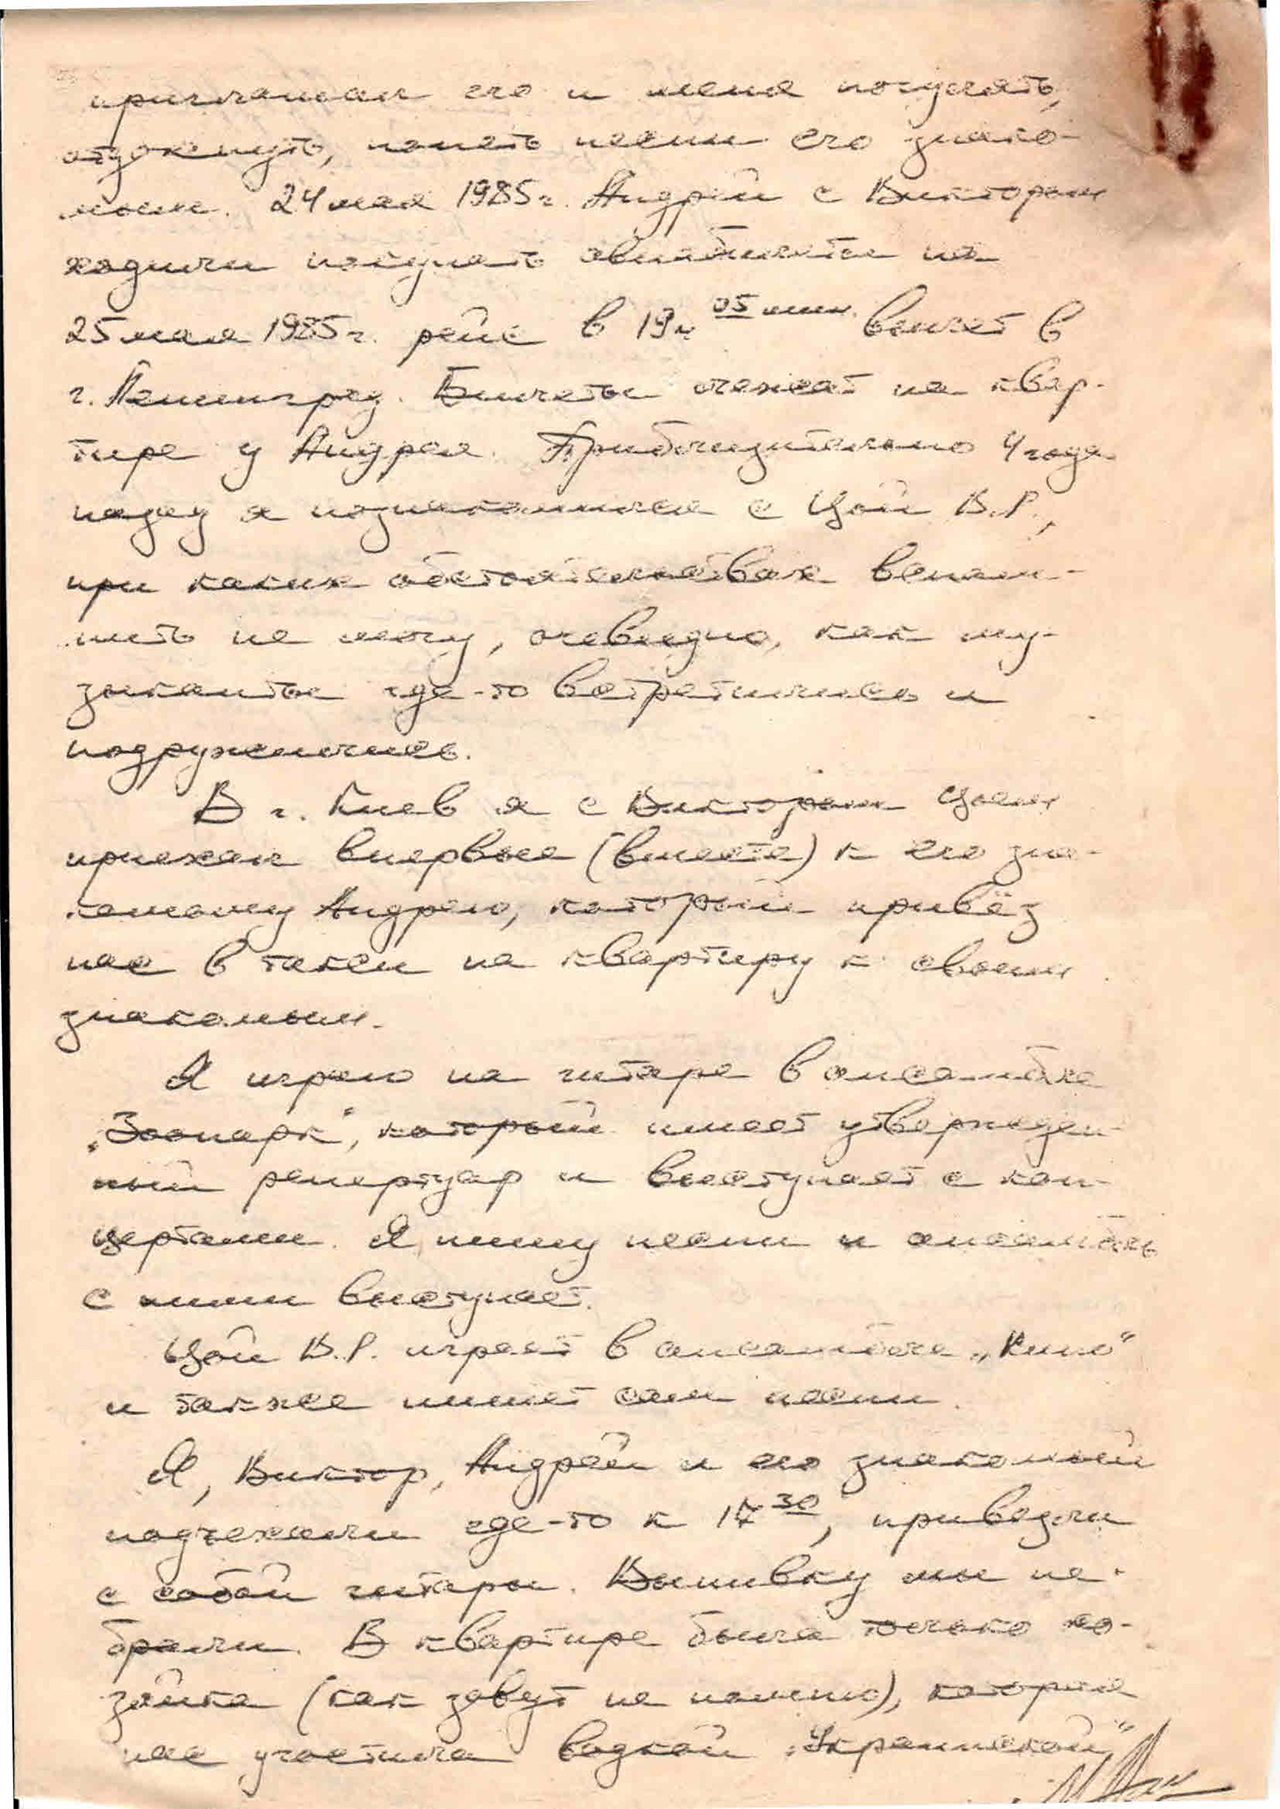 приглашал его и меня погулять,
отдохнуть, попеть песни его знако-
мым. 24 мая 1985 г. Андрей с Виктором
ходили покупать авиабилеты на
25 мая 1985 г. рейс в 19 ч 05 мин. вылет в
г. Ленинград. Билеты лежат на квар-
тире у Андрея. Приблизительно 4 года
назад я познакомился с Цой В.Р.,
при каких обстоятельствах вспом-
нить не могу, очевидно, как му-
зыканты где-то встретились и
подружились.
В г. Киев я с Виктором Цоем
приехал впервые (вместе) к его зна-
комому Андрею, который привёз
нас в такси на квартиру к своим
знакомым.
Я играю на гитаре в ансамбле
„Зоопарк", который имеет утвержден-
ный репертуар и выступает с кон-
цертами. Я пишу песни и ансамбль
с ними выступает.
Цой В.Р. играет в ансамбле „Кино"
и также пишет сам песни.
Я, Виктор, Андрей и его знакомый
подъехали где-то к 17 30, привезли
с собой гитары. Выпивку мы не
брали. В квартире была только хо-
зяйка (как зовут не помню), которая
нас угостила водкой „Украинской"